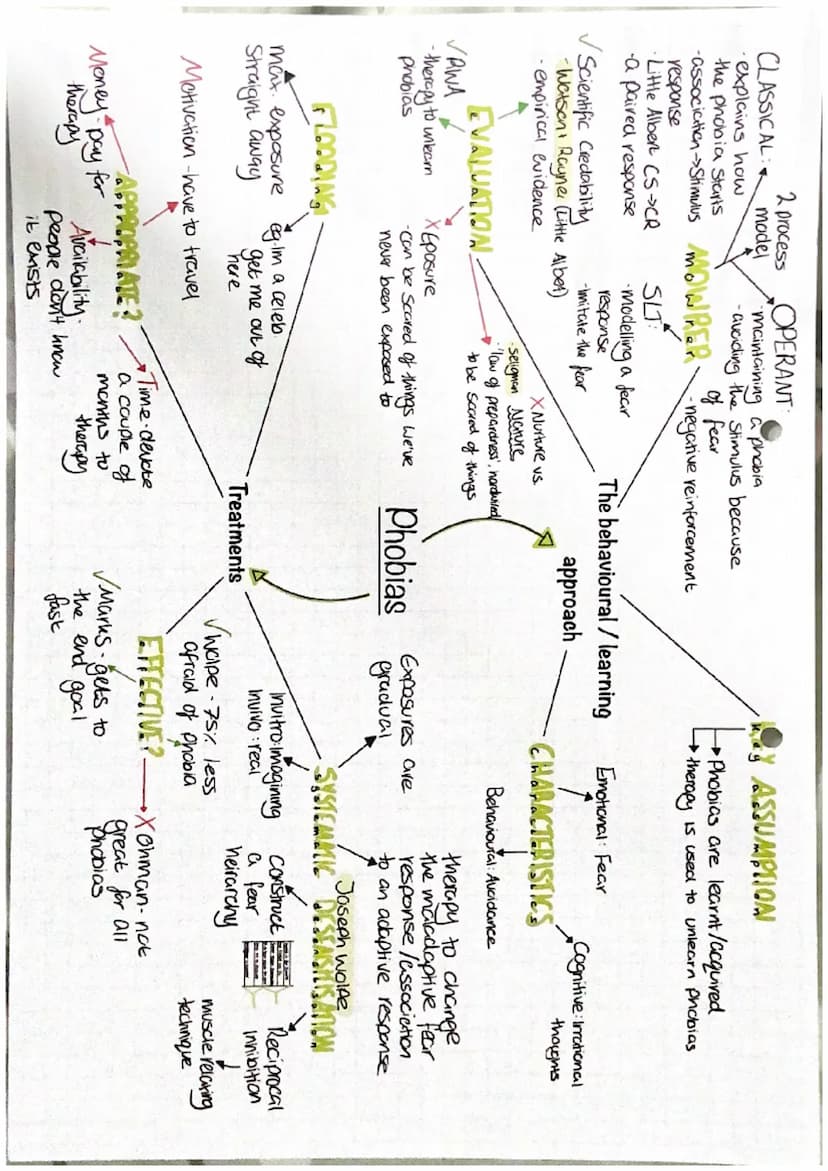 Phobias
The behavioural / learning
approach
KEY ASSUMPTION
Phobias are learnt/acquired
therapy is used to unlearn phobias
MOWRER
2 process
model
CLASSICAL:
- explains how
the phobia starts
- association → Stimulus
response
- Little Albert CS → CR
- a paired response
OPERANT:
- maintaining a phobia
- avoiding the stimulus because
of fear
- negative reinforcement
SLT:
- modelling a fear
response
- imitate the fear
EVALUATION
✓ Scientific Credability
- Watson + Rayner (Little Albert)
- empirical evidence
✓ RWA
- therapy to unlearn
phobias
X Exposure
- can be scared of things we've
never been exposed to
X Nurture vs.
Nature
- seligman
- 'law of preparedness', hardwired
to be scared of things
CHARACTERISTICS
Emotional: Fear
Behavioural: Avoidance
Cognitive: Irrational
thoughts
Treatments
FLOODING
max. exposure
Straight away
eg. Im a celeb
get me out of
here
APPROPRIATE?
Motivation - have to travel
Money - pay for
therapy
Availability -
people don't know
it exists
Time - devote
a couple of
months to
therapy
EFFECTIVE?
✓ Wolpe - 75% less
afraid of phobia
✓ Marks - gets to
the end goal
fast
X Ohman - not
great for all
phobias
SYSTEMATIC DESENSITISATION
Joseph Wolpe
Exposures are
gradual
therapy to change
the maladaptive fear
response/association
to an adaptive response.
Invitro: imagining
Invivo: real
construct
a fear
heirarchy
Reciprocal
Inhibition
muscle relaxing
technique